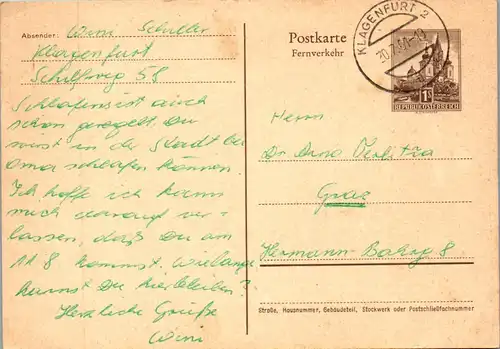 Absender: Wini Schuller
Klagenfurt
Schilfweg 58
Schlafen ist auch
schon geregelt. Du
wirst in der Stadt bei
Oma schlafen können.
Ich hoffe ich kann
mich darauf ver-
lassen, daß Du am
11.8 kommst. Wielange
kannst Du hierbleiben?
Herzliche Grüße
Wini
Postkarte
Fernverkehr
KLAGENFURT 2
1S
REPUBLIK ÖSTERREICH
Herrn
Dr.
Graz
Hermann-Bahrg 8
Straße, Hausnummer, Gebäudeteil, Stockwerk oder Postschließfachnummer